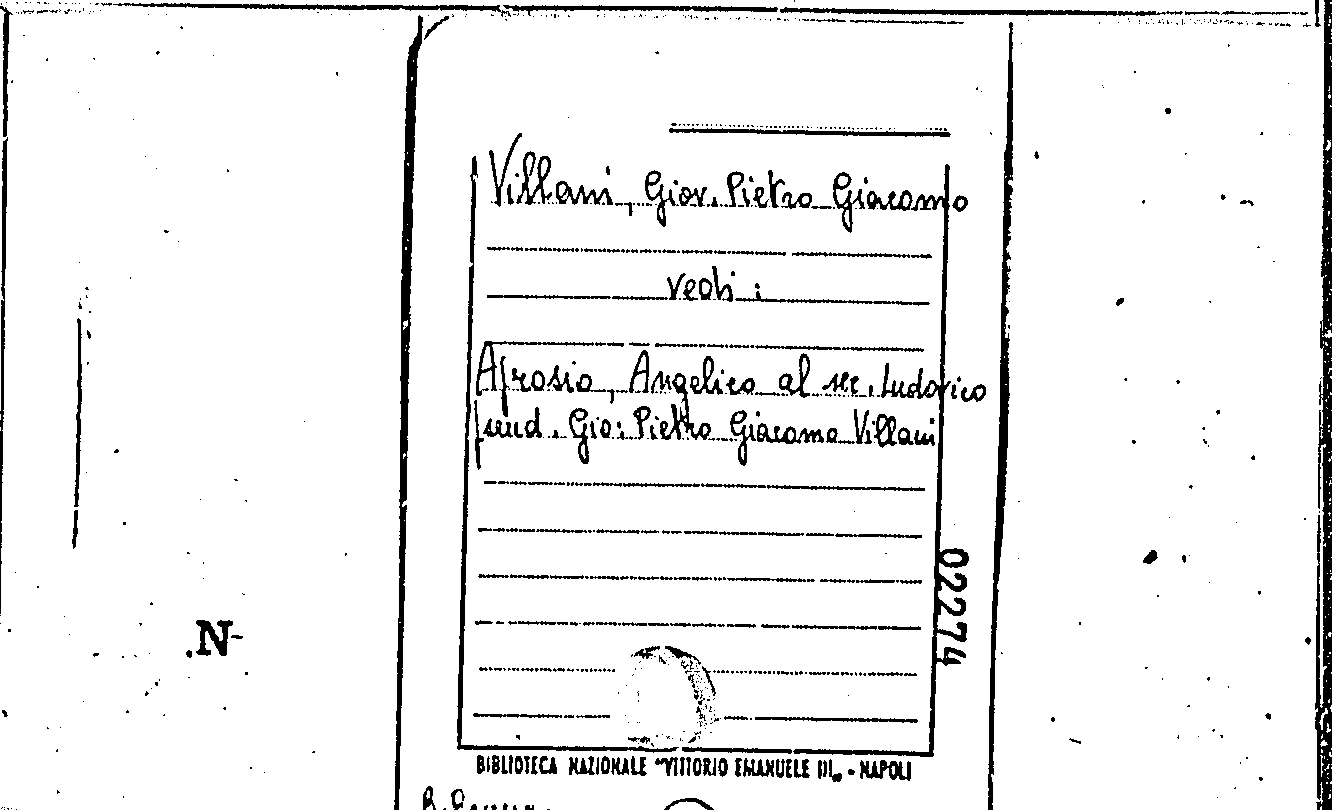 Villani, Giov. Pietro Giacomo
vedi:
Aprosio, Angelico al sec. Ludovico
pseud. Gio: Pietro Giacomo Villani
02274
.N-
BIBLIOTECA NAZIONALE "VITTORIO EMANUELE III„ - NAPOLI